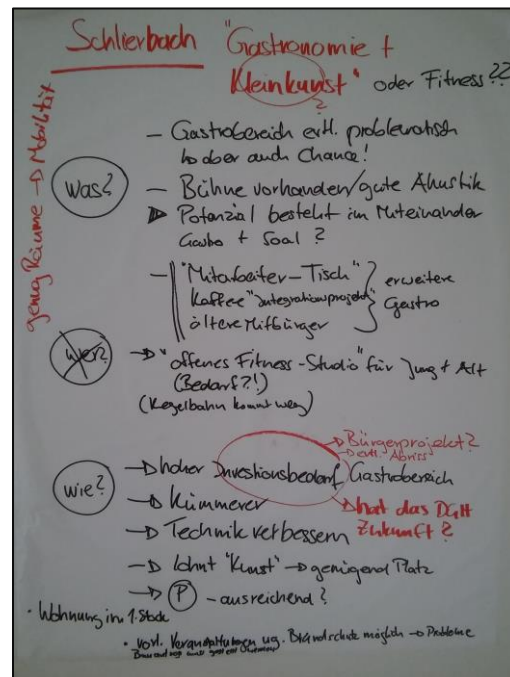 Schlierbach "Gastronomie +
Kleinkunst" oder Fitness??
?
genug Räume → Mobilität
Was?
– Gastrobereich evtl. problematisch
↳ aber auch Chance!
– Bühne vorhanden/gute Akustik
▶ Potenzial besteht im Miteinander
Gastro + Saal?
– "Mitarbeiter-Tisch"
Kaffee "Integrationsprojekt"
ältere Mitbürger
} erweitere
Gastro
Wer?
→ "offenes Fitness-Studio" für Jung + Alt
(Bedarf?!)
(Kegelbahn kommt weg)
→ Bürgerprojekt?
→ evtl. Abriss
Wie?
→ hoher Investionsbedarf Gastrobereich
→ hat das DGH
Zukunft?
→ Kümmerer
→ Technik verbessern
→ lohnt "Kunst" → genügend Platz
→ P – ausreichend?
• Wohnung im 1. Stock
• Veranstaltungen Brandschutz möglich → Probleme